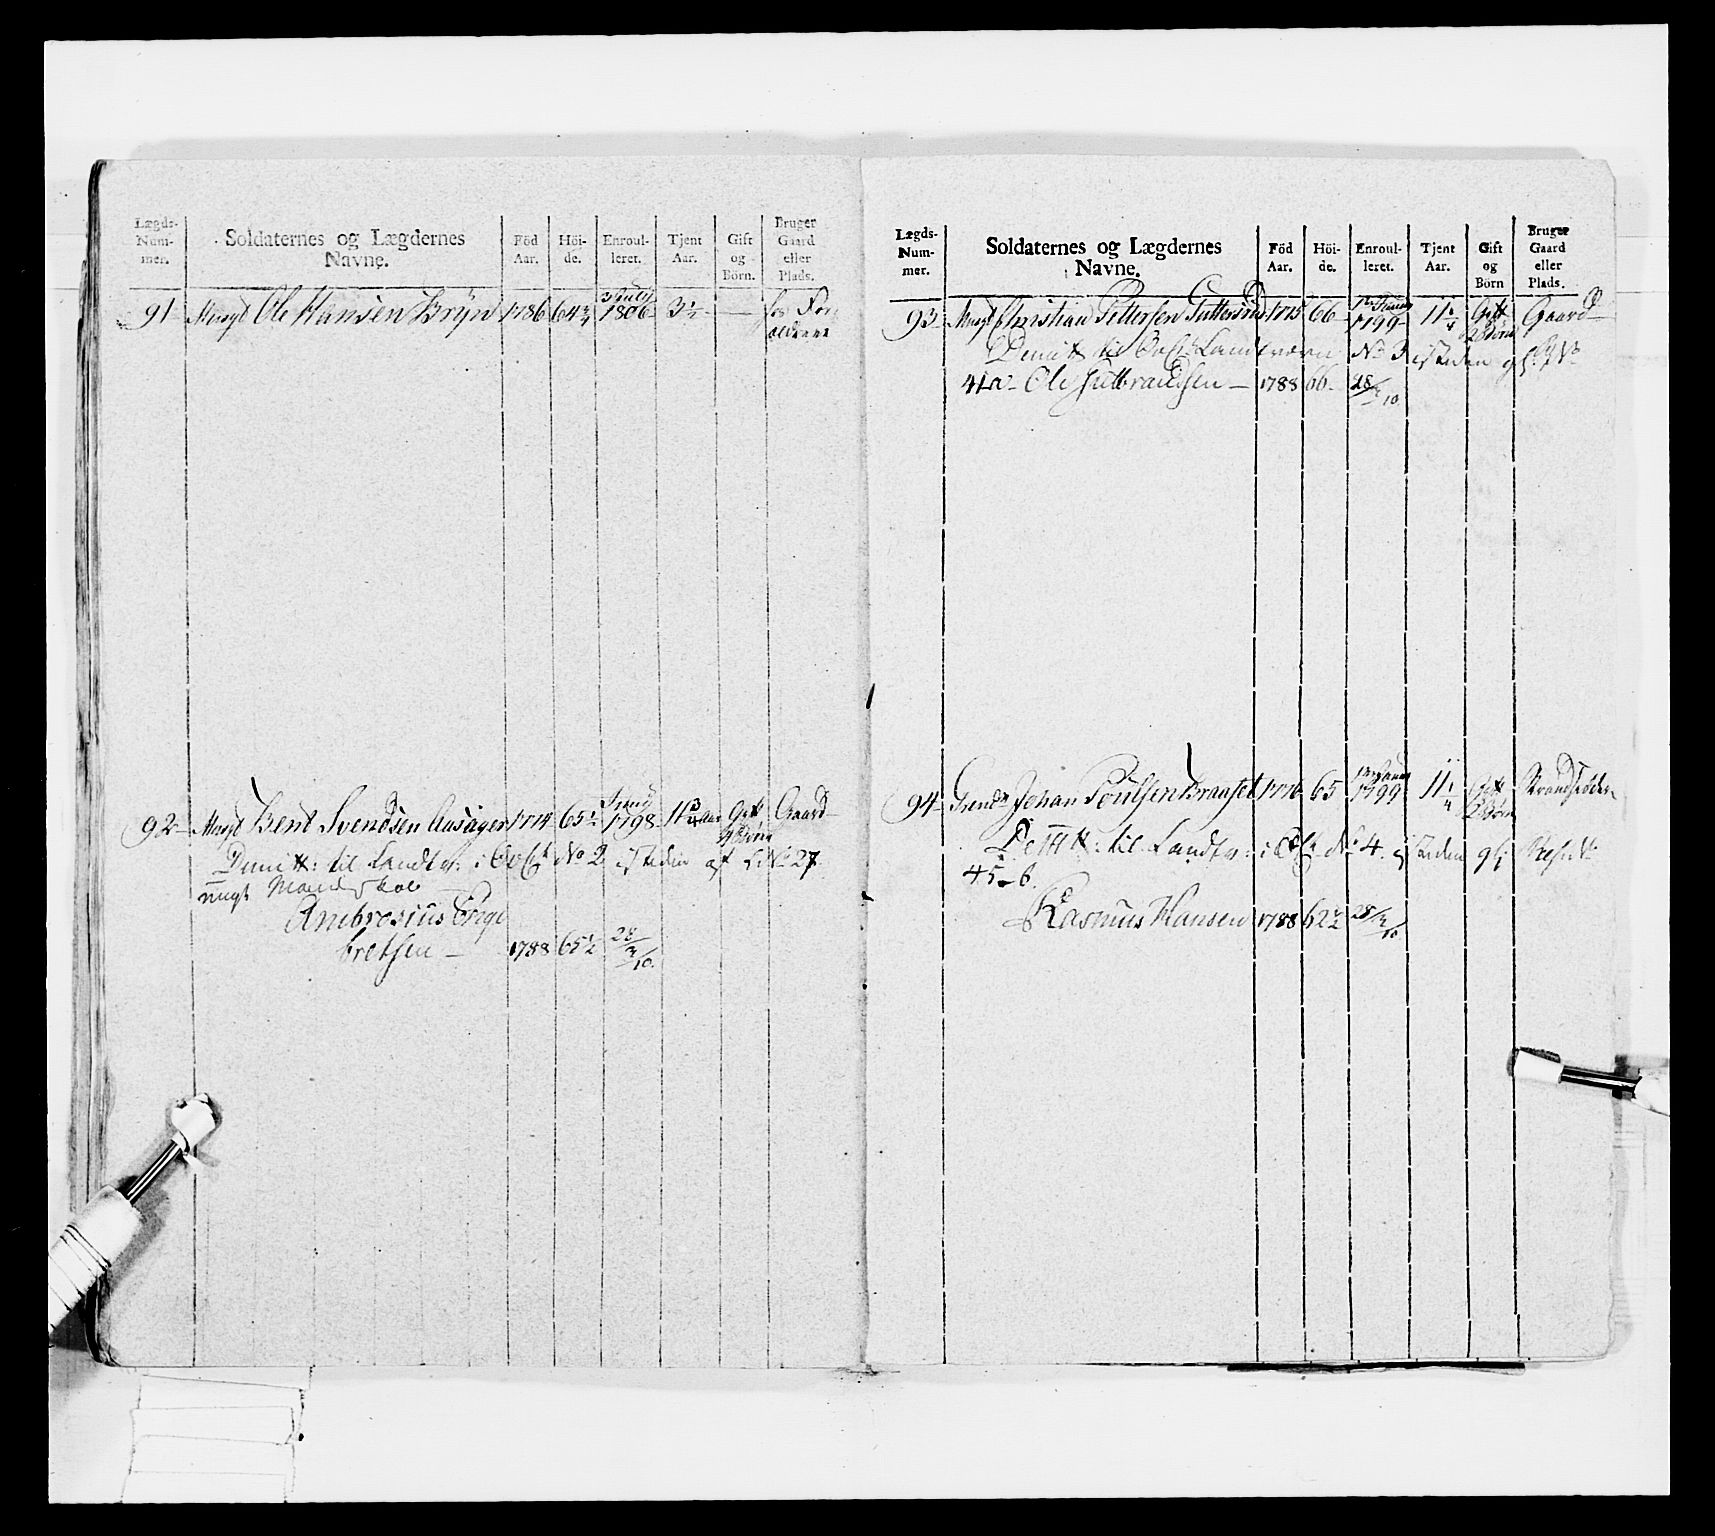 Lægds-Num-mer. Soldaternes og Lægdernes Navne. Föd Aar. Höi-de. Enroul-leret. Tjent Aar. Gift og Börn. Bruger Gaard eller Plads.
91 Musqt Ole Hansen Bryn 1786 64 3/4 1806 3 1/2 — hos For
ældrene
92 Musqt Bent Svendsen Aasager 1774 65 1/2 1798 11 3/4 Aar Gift Gaard
Dimitt: til Landtv: i Comp No 2 isteden af L: No 27
ungt Mandskab
Ambrosius Enge
bretsen — 1788 65 1/2 28/10
Lægds-Num-mer. Soldaternes og Lægdernes Navne. Föd Aar. Höi-de. Enroul-leret. Tjent Aar. Gift og Börn Bruger Gaard eller Plads.
93 Musqt Christian Pettersen 1775 66 1799 11 1/4 Gift Gaard
2 Börn
Dimitt til Landeværn No 3 isteden
41 a Ole Gulbrandsen — 1788 66 28/10
94 Grend Johan Poulsen 1776 65 1799 11 1/4 Gift Strandsidder
2 Börn
Demitt: til Landtv: No 4 isteden
45 b.
Rasmus Hansen 1788 62 1/2 28/10